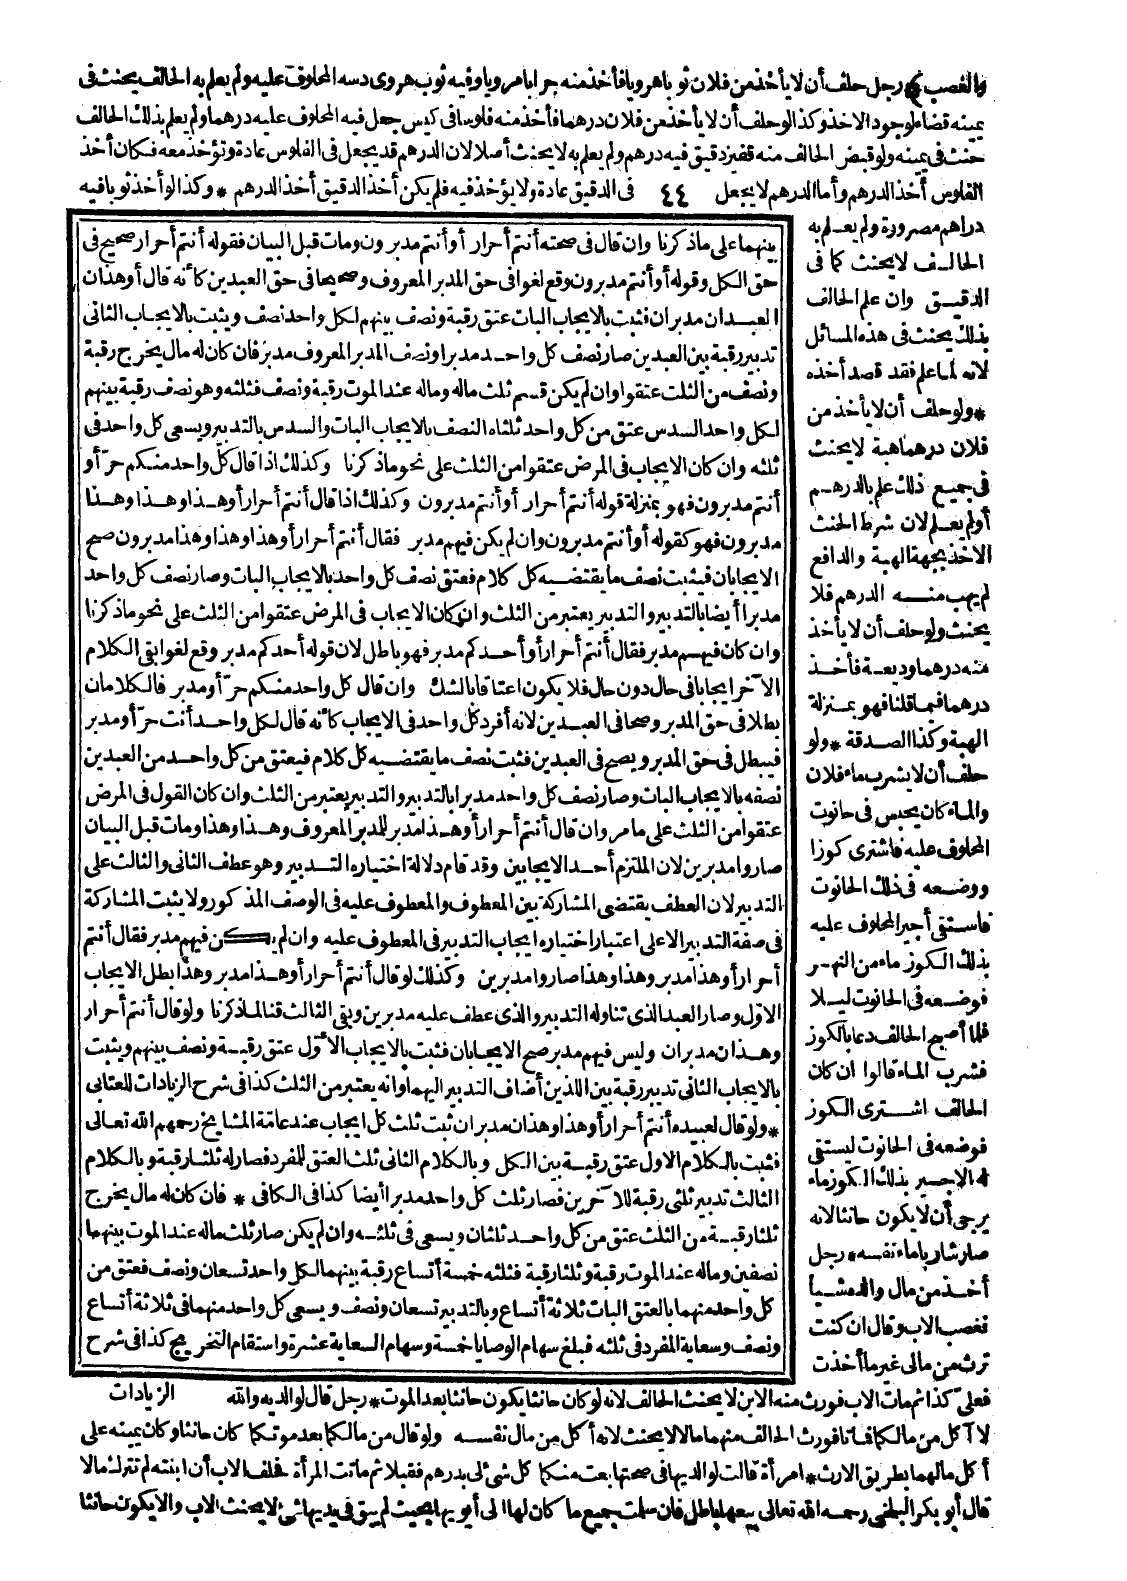 والغصب * رجل حلف أن لا يأخذ من فلان ثوبا هرويا فأخذ منه جرابا مرويا وفيه ثوب هروى دسه المحلوف عليه ولم يعلم به الحالف يحنث فى
يمينه قضاء لوجود الاخذ وكذا لو حلف أن لا يأخذ من فلان درهما فأخذ منه فلوسا فى كيس جعل فيه المحلوف عليه درهما ولم يعلم بذلك الحالف
حنث فى يمينه ولو قبض الحالف منه قفيز دقيق فيه درهم ولم يعلم به لا يحنث أصلا لان الدرهم قد يجعل فى الفلوس عادة وتؤخذ معه فكان أخذ
الفلوس أخذ الدرهم وأما الدرهم لا يجعل ٤٤ فى الدقيق عادة ولا يؤخذ فيه فلم يكن أخذ الدقيق أخذ الدرهم * وكذا لو أخذ ثوبا فيه
دراهم مصرورة ولم يعلم به
الحالف لا يحنث كما فى
الدقيق وان علم الحالف
بذلك يحنث فى هذه المسائل
لانه لما علم فقد قصد أخذه
* ولو حلف أن لا يأخذ من
فلان درهما هبة لا يحنث
فى جميع ذلك علم بالدرهم
أو لم يعلم لان شرط الحنث
الاخذ بجهة الهبة والدافع
لم يهب منه الدرهم فلا
يحنث ولو حلف أن لا يأخذ
منه درهما وديعة فأخذ
درهما فيما قلنا فهو بمنزلة
الهبة وكذا الصدقة * ولو
حلف أن لا يشرب ماء فلان
والماء كان يحبس فى حانوت
المحلوف عليه فاشترى كوزا
ووضعه فى ذلك الحانوت
فاستقى أجير المحلوف عليه
بذلك الكوز ماء من النهر
فوضعه فى الحانوت ليلا
فلما أصبح الحالف دعا بالكوز
فشرب الماء قالوا ان كان
الحالف اشترى الكوز
فوضعه فى الحانوت ليستقى
له الاجير بذلك الكوز ماء
يرجى أن لا يكون حانثا لانه
صار شاربا ماء نفسه * رجل
أخذ من مال والده شيأ
فغصب الاب وقال ان كنت
ترث من مالى غير ما أخذت
بينهما على ماذكرنا وان قال فى صحته أنتم أحرار أو أنتم مدبرون ومات قبل البيان فقوله أنتم أحرار صحيح فى
حق الكل وقوله أو أنتم مدبرون وقع لغوا فى حق المدبر المعروف وصحيحا فى حق العبدين كأنه قال أو هذان
العبدان مدبران فثبت بالايجاب البات عتق رقبة ونصف بينهم لكل واحد نصف ويثبت بالايجاب الثانى
تدبير رقبة بين العبدين صار نصف كل واحد مدبرا ونصف المدبر المعروف مدبر فان كان له مال يخرج رقبة
ونصف من الثلث عتقوا وان لم يكن قسم ثلث ماله وماله عند الموت رقبة ونصف فثلثه وهو نصف رقبة بينهم
لكل واحد السدس عتق من كل واحد ثلثاه النصف بالايجاب البات والسدس بالتدبير ويسعى كل واحد فى
ثلثه وان كان الايجاب فى المرض عتقوا من الثلث على نحو ماذكرنا وكذلك اذا قال كل واحد منكم حر أو
أنتم مدبرون فهو بمنزلة قوله أنتم أحرار أو أنتم مدبرون وكذلك اذا قال أنتم أحرار أو هذا وهذا وهذا
مدبرون فهو كقوله أو أنتم مدبرون وان لم يكن فيهم مدبر فقال أنتم أحرار أو هذا وهذا وهذا مدبرون صح
الايجابان فيثبت نصف ما يقتضيه كل كلام فعتق نصف كل واحد بالايجاب البات وصار نصف كل واحد
مدبرا أيضا بالتدبير والتدبير يعتبر من الثلث وان كان الايجاب فى المرض عتقوا من الثلث على نحو ماذكرنا
وان كان فيهم مدبر فقال أنتم أحرار أو أحدكم مدبر فهو باطل لان قوله أحدكم مدبر وقع لغوا بقى الكلام
الآخر ايجابا فى حال دون حال فلا يكون اعتاقا بالشك وان قال كل واحد منكم حر أو مدبر فالكلامان
بطلا فى حق المدبر وصحا فى العبدين لانه أفرد كل واحد فى الايجاب كأنه قال لكل واحد أنت حر أو مدبر
فيبطل فى حق المدبر ويصح فى العبدين فثبت نصف ما يقتضيه كل كلام فيعتق من كل واحد من العبدين
نصفه بالايجاب البات وصار نصف كل واحد مدبرا بالتدبير والتدبير يعتبر من الثلث وان كان القول فى المرض
عتقوا من الثلث على ما مر وان قال أنتم أحرار أو هذا مدبر للمدبر المعروف وهذا وهذا ومات قبل البيان
صاروا مدبرين لان الملتزم أحد الايجابين وقد قام دلالة اختياره التدبير وهو عطف الثانى والثالث على
التدبير لان العطف يقتضى المشاركة بين المعطوف والمعطوف عليه فى الوصف المذكور ولا يثبت المشاركة
فى صفة التدبير الا على اعتبار اختياره ايجاب التدبير فى المعطوف عليه وان لم يكن فيهم مدبر فقال أنتم
أحرار أو هذا مدبر وهذا وهذا صاروا مدبرين وكذلك لو قال أنتم أحرار أو هذا مدبر وهذا بطل الايجاب
الاول وصار العبد الذى تناوله التدبير والذى عطف عليه مدبرين وبقى الثالث قنا لماذكرنا ولو قال أنتم أحرار
وهذان مدبران وليس فيهم مدبر صح الايجابان فثبت بالايجاب الأول عتق رقبة ونصف بينهم ويثبت
بالايجاب الثانى تدبير رقبة بين اللذين أضاف التدبير اليهما وانه يعتبر من الثلث كذا فى شرح الزيادات للعتابى
* ولو قال لعبيده أنتم أحرار أو هذا وهذان مدبران ثبت ثلث كل ايجاب عند عامة المشايخ رحمهم الله تعالى
فثبت بالكلام الاول عتق رقبة بين الكل وبالكلام الثانى ثلث العتق للمفرد فصار له ثلثا رقبة وبالكلام
الثالث تدبير ثلثى رقبة للآخرين فصار ثلث كل واحد مدبرا أيضا كذا فى الكافى * فان كان له مال يخرج
ثلثا رقبة من الثلث عتق من كل واحد ثلثان ويسعى فى ثلثه وان لم يكن صار ثلث ماله عند الموت بينهما
نصفين وماله عند الموت رقبة وثلثا رقبة فثلثه خمسة أتساع رقبة بينهما لكل واحد تسعان ونصف فعتق من
كل واحد منهما بالعتق البات ثلاثة أتساع وبالتدبير تسعان ونصف ويسعى كل واحد منهما فى ثلاثة أتساع
ونصف وسعاية المفرد فى ثلثه فبلغ سهام الوصايا خمسة وسهام السعاية عشرة واستقام التخريج كذا فى شرح
الزيادات
فعلى كذا ثم مات الاب فورث منه الابن لا يحنث الحالف لانه لو كان حانثا يكون حانثا بعد الموت * رجل قال لوالديه والله
لا آكل من مالكما فماتا فورث الحالف منهما مالا لا يحنث لانه أكل من مال نفسه ولو قال من مالكما بعد موتكما كان حانثا وكان يمينه على
أكل مالهما بطريق الارث * امرأة قالت لوالديها فى صحتها بعت منكما كل شئ لى بدرهم فقبلا ثم ماتت المرأة فحلف الاب أن ابنته لم تترك مالا
قال أبو بكر البلخى رحمه الله تعالى بيعها باطل فان سلمت جميع ما كان لها الى أبويها بحيث لم يبق فى يديها شئ لا يحنث الاب والا يكون حانثا